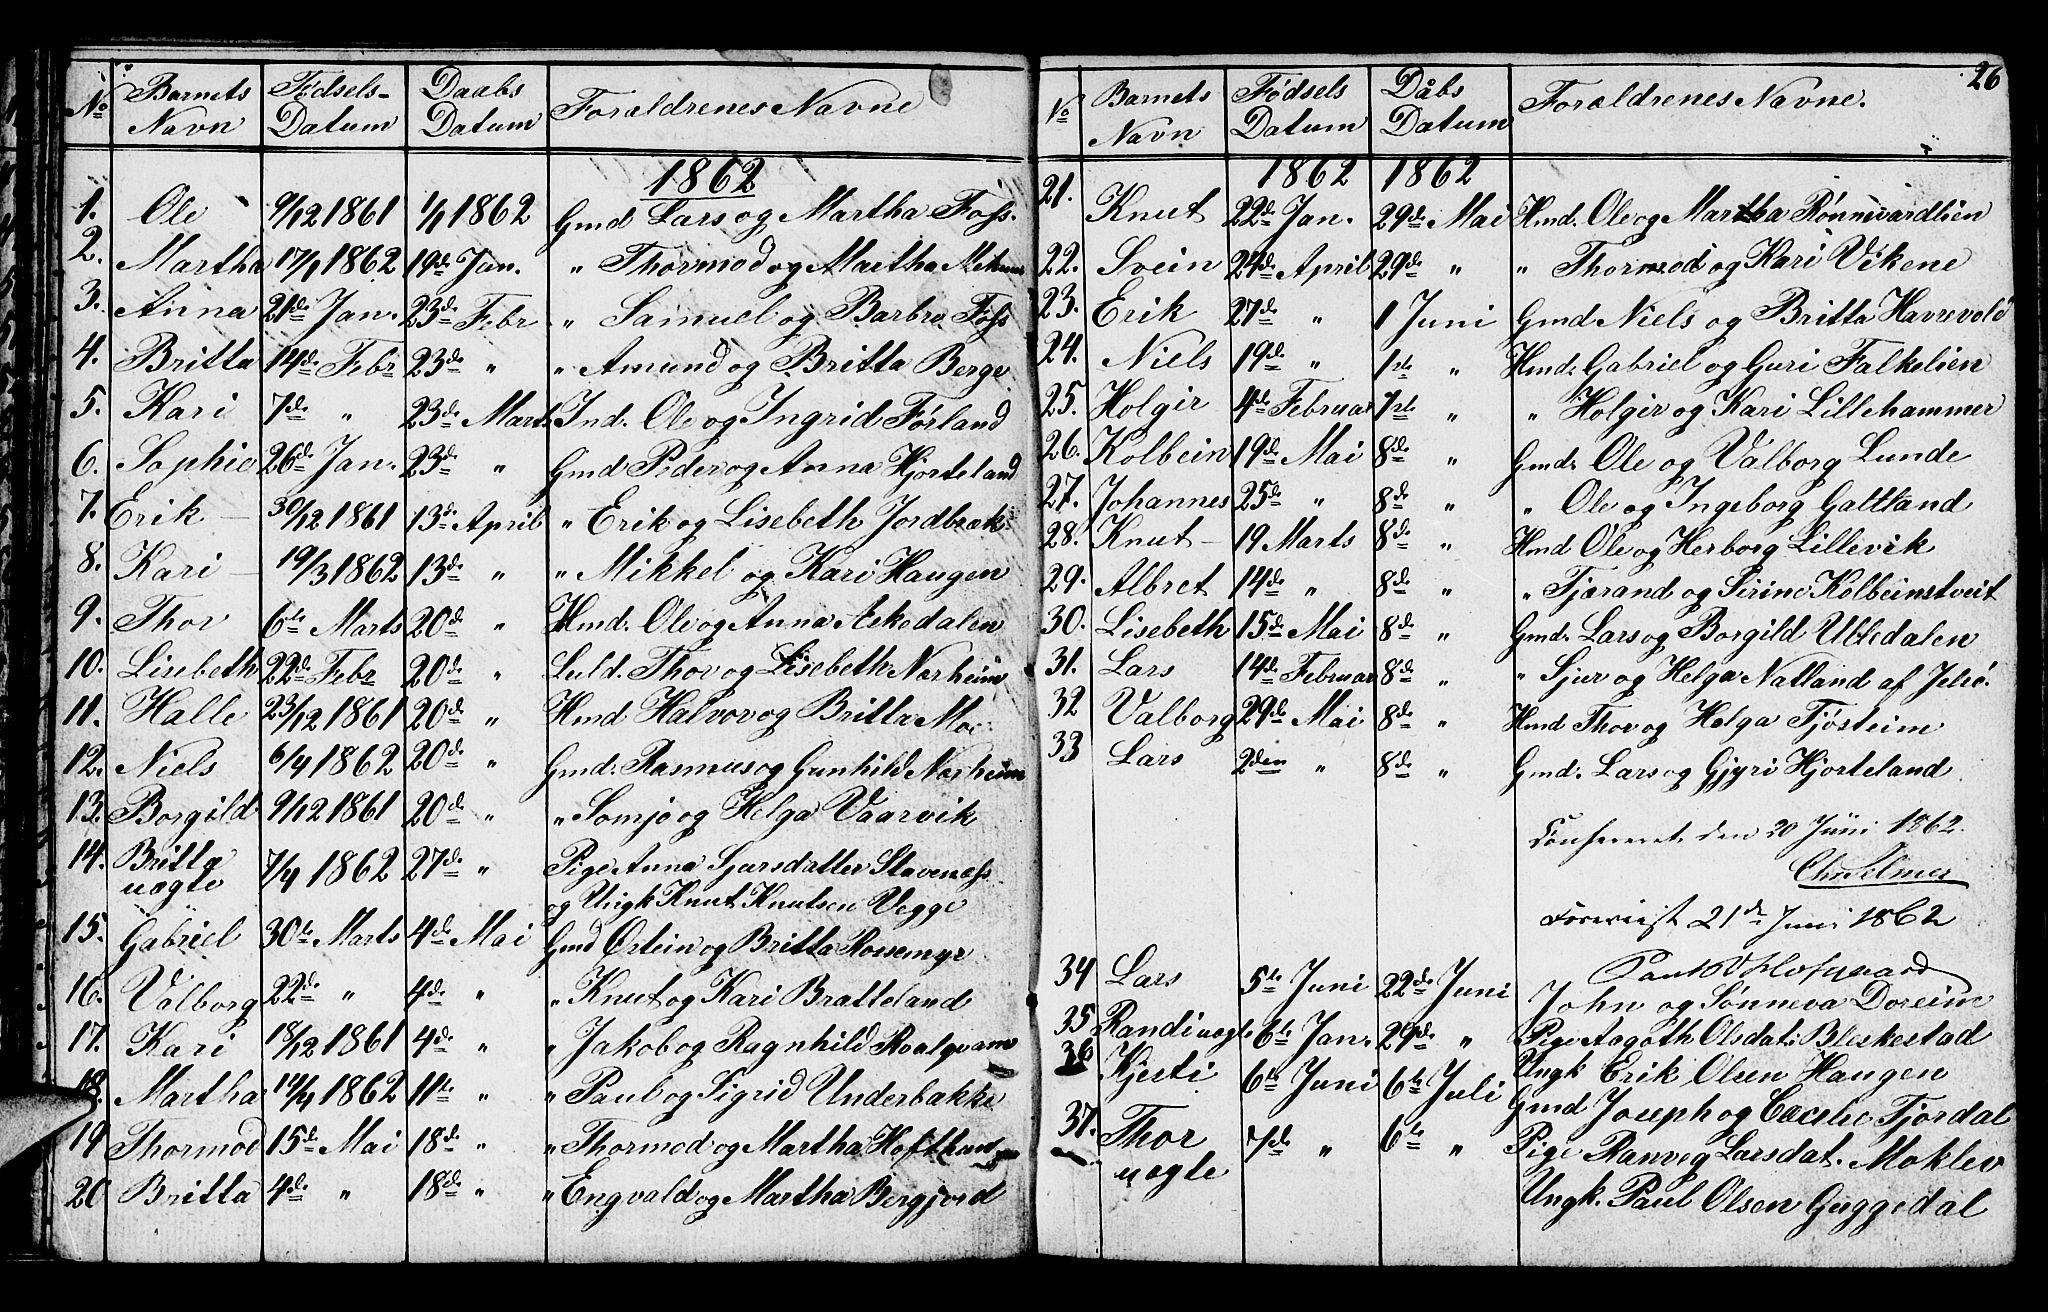 No Barnets Navn Fødsels- Datum Daabs Datum Forældrenes Navne
1862
1. Ole 9/12 1861 1/1 1862 Gmd Lars og Martha Foss.
2. Martha 17/1 1862 19de Jan. " Thormod og Martha Mehuus
3. Anna 21de Jan. 23de Febr " Samuel og Barbro Foss
4. Britta 14de Febr 23de " " Amund og Britta Berge
5. Kari 7de " 23de Marts Ind. Ole og Ingrid Førland
6. Sophie 26de Jan. 23de " Gmd Peder og Anna Hjorteland
7. Erik – 30/12 1861 13de April " Erik og Lisebeth Jordbræk
8. Kari – 19/3 1862 13de " " Mikkel og Kari Haugen
9. Thor 6te Marts 20de " Hmd. Ole og Anna Askedalen
10. Lisebeth 22de Febr 20de " Luld. Thor og Lisebeth Norheim
11. Halle 23/12 1861 20de " Hmd Halvor og Britta Moe
12. Niels 6/4 1862 20de " Gmd. Rasmus og Gunhild Norheim
13. Borgild 9/12 1861 20de " " Somjo og Helga Vaarvik
14. Britta 7/4 1862 27de " Pige Anna Sjursdatter Stavenæss
uægte og Ungk Knut Knutsen Vegge
15. Gabriel 30te Marts 4de Mai Gmd Østein og Britta Rossemyr
16. Valborg 22de " 4de " " Knut og Kari Bratteland
17. Kari 18/12 1861 4de " " Jakob og Ragnhild Roalqvam
18. Martha 12/4 1862 11te " " Paul og Sigrid Underbakke
19 Thormod 15de Mai 18de " " Thormod og Martha Hofthun
20 Britta 4de " 18de " " Engvald og Martha Bergjord
26
No Barnets Navn Fødsels Datum Dåbs Datum Forældrenes Navne.
1862 1862
21. Knut 22de Jan. 29de Mai Hmd. Ole og Martha Rønnevardlien
22. Svein 24de April 29de " " Thormod og Kari Vikene
23. Erik 27de " 1 Juni Gmd Niels og Britta Havrevold
24. Niels 19de " 1ste " Hmd. Gabriel og Guri Falkelien
25. Holgir 4de Februar 1ste " " Holgir og Kari Lillehammer
26. Kolbein 19de Mai 8de " Gmd. Ole og Valborg Lunde
27. Johannes 25de " 8de " " Ole og Ingeborg Galtland
28. Knut – 19 Marts 8de " Hmd Ole og Herborg Lillevik
29. Albret 14de " 8de " " Tjærand og Sirine Kolbeinstveit
30. Lisebeth 15de Mai 8de " Gmd. Lars og Borgild Ubledalen
31. Lars 14de Februar 8de " " Sjur og Helga Natland af Jelsø.
32 Valborg 29de Mai 8de " Hmd Thor og Helga Tjøsteim
33 Lars 2den " 8de " Gmd. Lars og Gjyri Hjorteland
Confereret den 20 Juni 1862.
Chr Elmes
Foreviist 21de Juni 1862
34 Lars 5te Juni 22de Juni John og Sønneva Doreim
35 Randi uægte 6te Jan. 29de " Pige Aagoth Olsdat. Bleskestad
Ungk Erik Olsen Haugen
36 Kjersti 6te Juni 6te Juli Gmd Joseph og Cæcelie Fjordal
37. Thor 7de " 6te " Pige Ranveg Larsdat. Moklev
uægte Ungk. Paul Olsen Guggedal